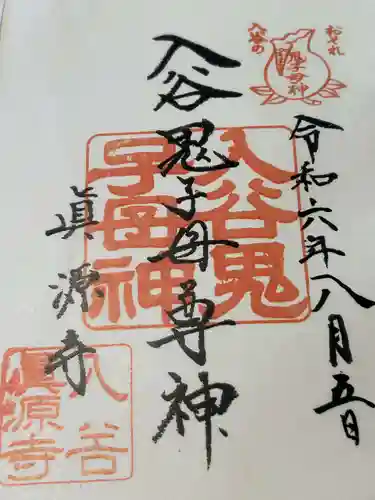 おそれ
入谷の
鬼子母神
令和六年八月五日
入谷鬼子母尊神
入谷鬼
子母神
眞源寺
入谷
眞源寺